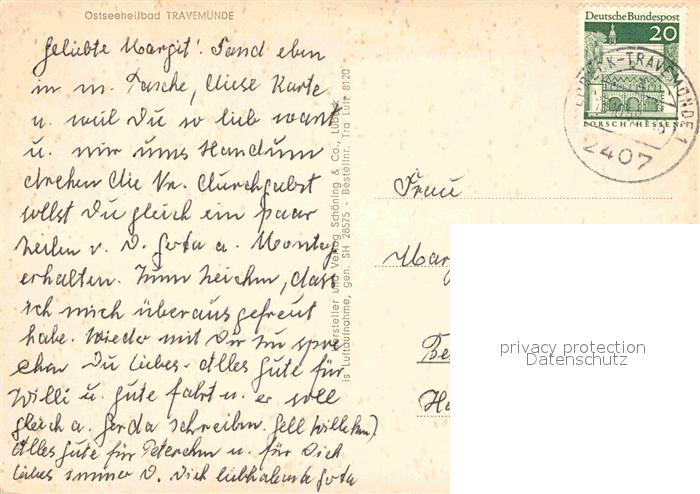 Ostseeheilbad TRAVEMÜNDE
Geliebte Margit! Fand eben
in m. Tasche, diese Karte
u. weil Du so lieb warst
u. mir ums Handum
drehen die Nr. durchgabst
sollst Du gleich ein paar
Zeilen v. D. Gota a. Montag
erhalten. Zum Zeichen, dass
ich mich überaus gefreut
habe. Wieder mit Dir zu spre
chen Du Liebes. Alles Gute für
Willi u. gute Fahrt u. er soll
gleich a. Gerda schreiben. Gell Willichen)
Alles Gute für Peterchen u. für Dich
Liebes immer D. Dich liebhabende Gota
Hersteller und Verlag Schöning & Co., Lübeck
is Luftaufnahme, gen. SH 28575 - Bestellnr. Tra Luft 8120
Deutsche Bundespost
20
LORSCH/HESSEN
LÜBECK-TRAVEMÜNDE 1
2407
Frau
Marg
privacy protection
Datenschutz